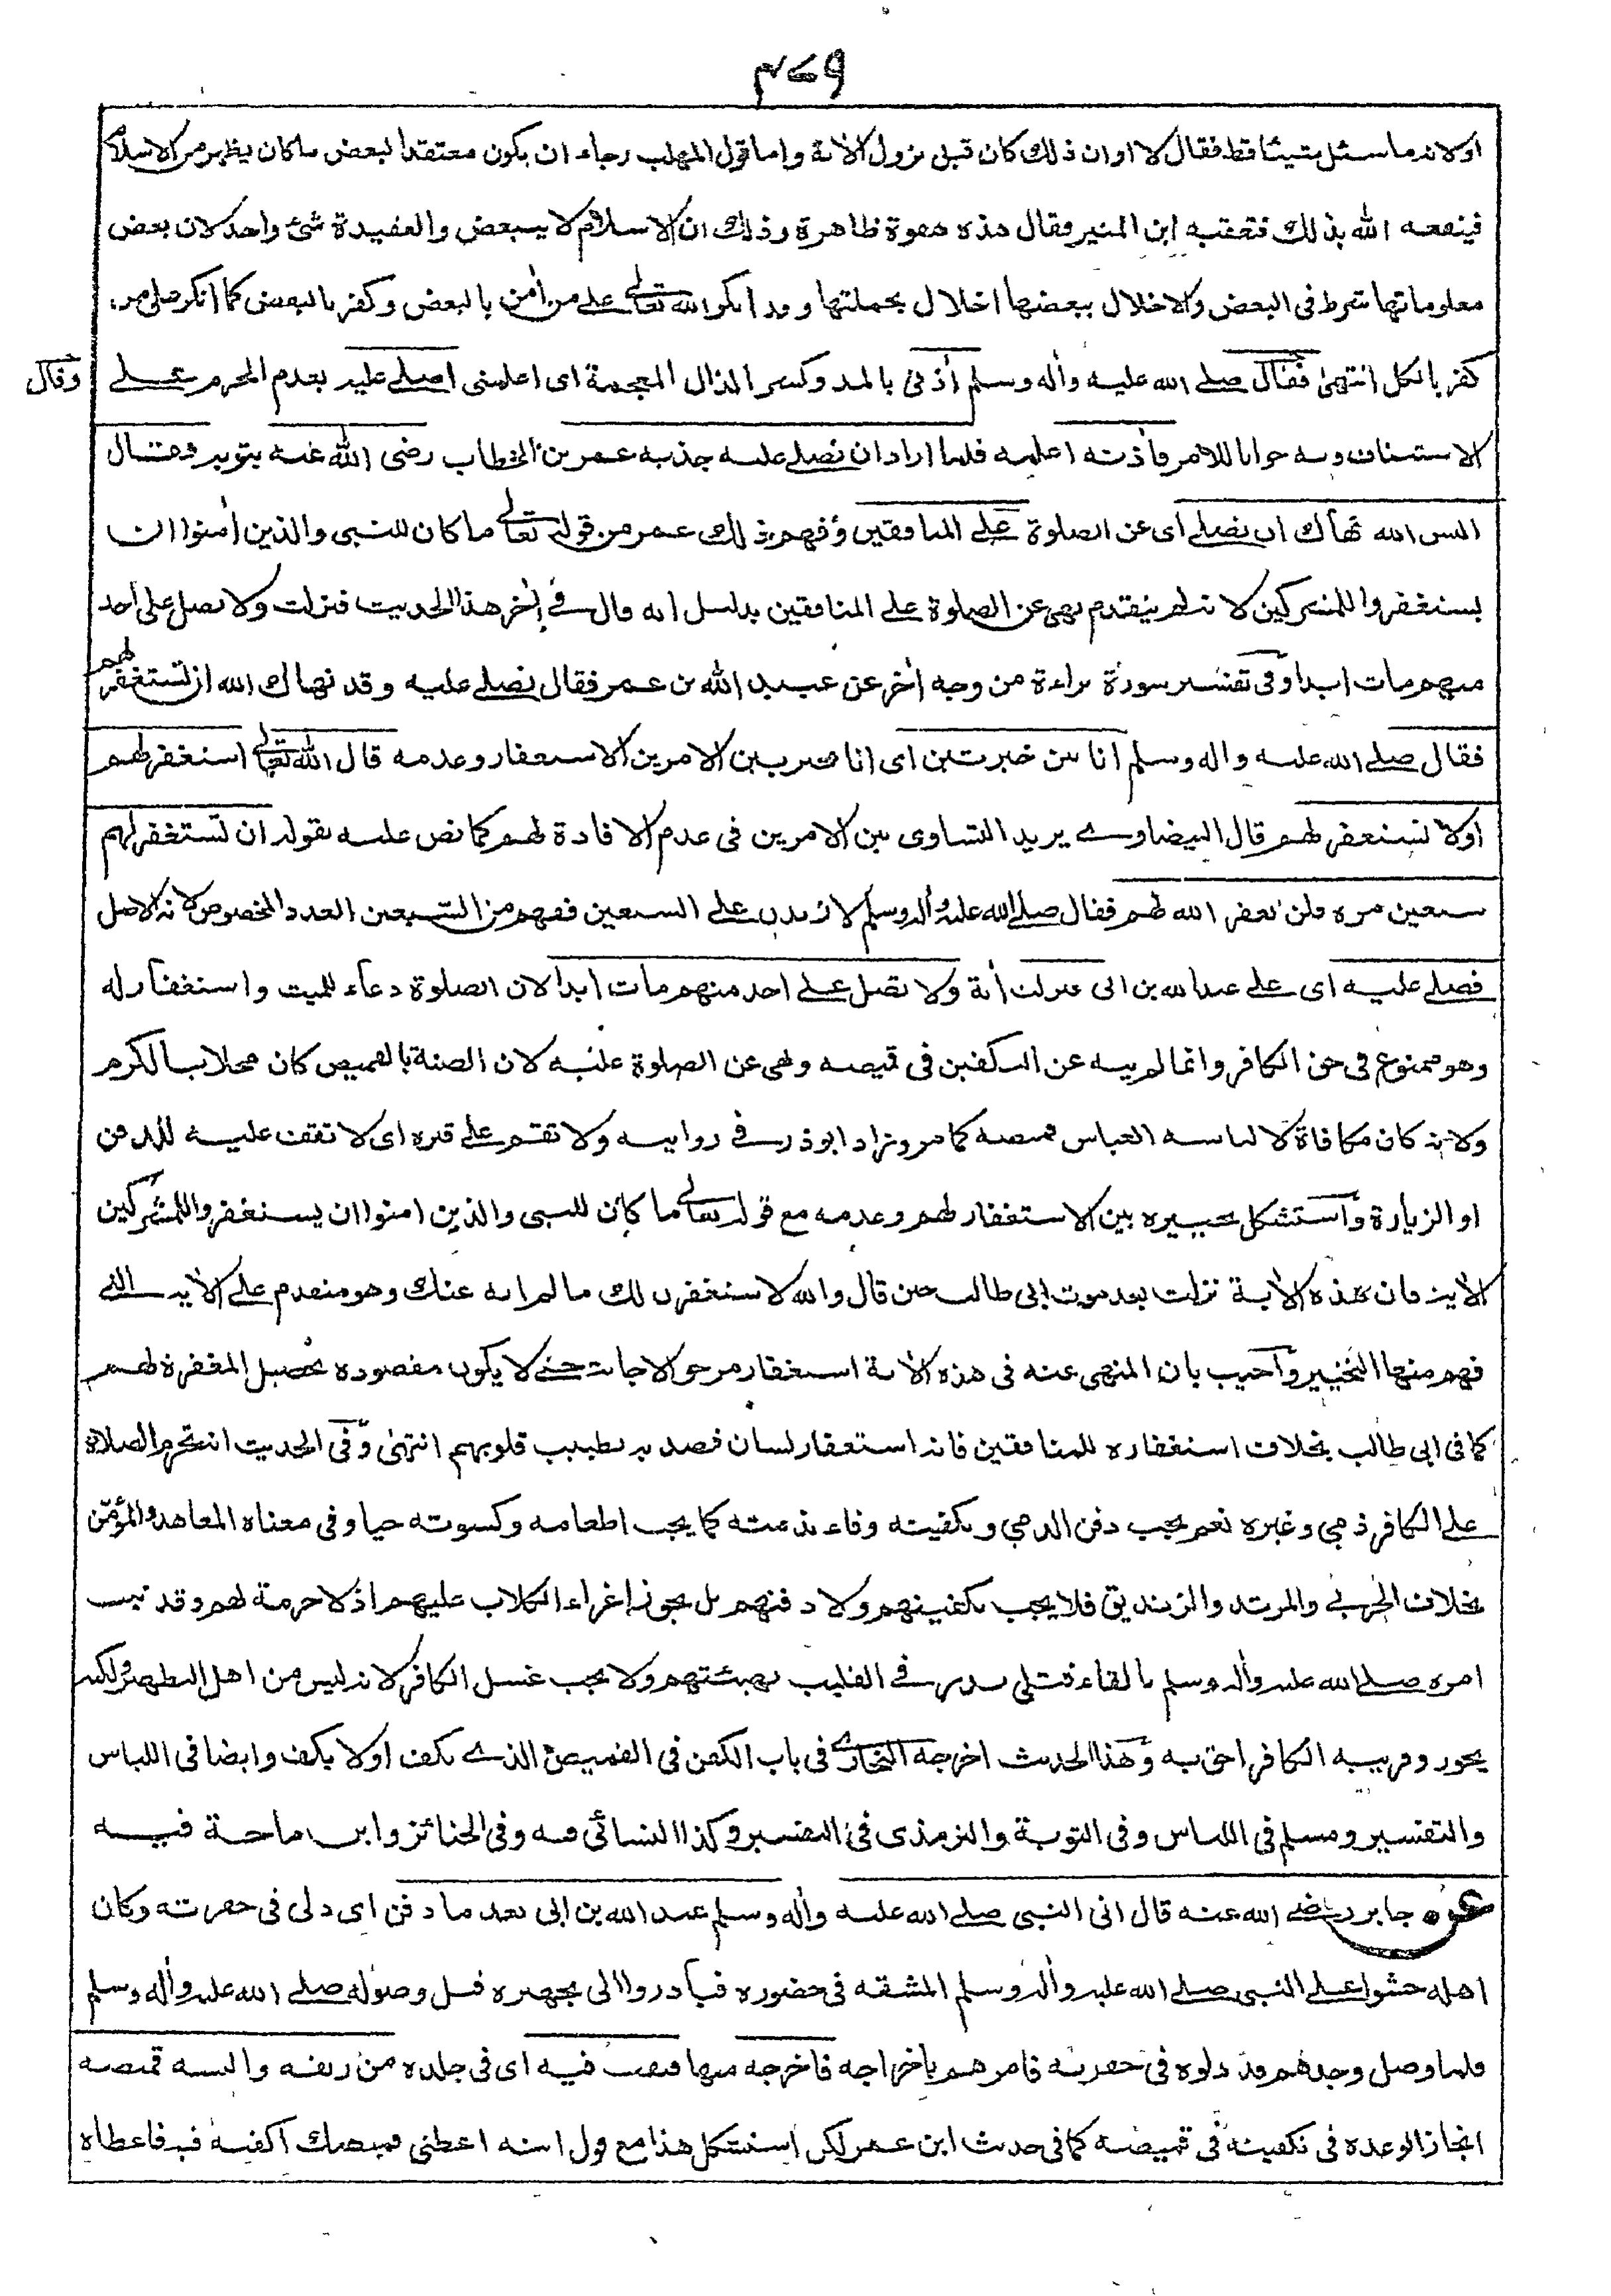 ٣٧٩
اولانه ما سئل شيئا قط فقال لا او ان ذلك كان قبل نزول الآية واما قول المهلب رجاء ان يكون معتقدا لبعض ما كان يظهر من الاسلام
فينفعه الله بذلك فتعقبه ابن المنير فقال هذه هفوة ظاهرة وذلك ان الاسلام لا يتبعض والعقيدة شئ واحد لان بعض
معلوماتها شرط في البعض والاخلال ببعضها اخلال بجملتها وقد انكر الله تعالى على من آمن بالبعض وكفر بالبعض كما انكر على من
كفر بالكل انتهى فقال صلى الله عليه وآله وسلم آذنى بالمد وكسر الذال المعجمة اى اعلمنى اصلى عليه بعدم الجزم على
وقال
الاستيناف وبه جوابا للامر فآذنه اعلمه فلما اراد ان يصلى عليه جذبه عمر بن الخطاب رضى الله عنه بثوبه فقال
اليس الله نهاك ان تصلى اى عن الصلوة على المنافقين وفهم ذلك عمر من قوله تعالى ما كان للنبى والذين آمنوا ان
يستغفروا للمشركين لانه لم يتقدم نهى عن الصلوة على المنافقين بدليل انه قال فى آخر هذا الحديث فنزلت ولا تصل على احد
منهم مات ابدا وفى تفسير سورة براءة من وجه آخر عن عبيد الله بن عمر فقال تصلى عليه وقد نهاك الله ان تستغفر لهم
فقال صلى الله عليه وآله وسلم انا بين خيرتين اى انا مخير بين الامرين الاستغفار وعدمه قال الله تعالى استغفر لهم
اولا تستغفر لهم قال البيضاوى يريد التساوى بين الامرين فى عدم الافادة لهم كما نص عليه بقوله ان تستغفر لهم
سبعين مرة فلن يغفر الله لهم فقال صلى الله عليه وآله وسلم لازيدن على السبعين ففهم من السبعين العدد المخصوص لانه الاصل
فصلى عليه اى على عبد الله بن ابى فنزلت آية ولا تصل على احد منهم مات ابدا لان الصلوة دعاء للميت واستغفار له
وهو ممنوع فى حق الكافر وانما لم ينه عن التكفين فى قميصه ونهى عن الصلوة عليه لان الضنة بالقميص كان مخلا بالكرم
ولانه كان مكافاة لالباسه العباس قميصه كما مر وزاد ابوذر فى روايته ولا تقم على قبره اى لا تقف عليه للدفن
او الزيارة واستشكل تخييره بين الاستغفار لهم وعدمه مع قوله تعالى ما كان للنبى والذين امنوا ان يستغفروا للمشركين
الآية فان هذه الآية نزلت بعد موت ابى طالب حين قال والله لاستغفرن لك ما لم انه عنك وهو متقدم على الآية التى
فهم منها التخيير واجيب بان المنهى عنه فى هذه الآية استغفار مرجو الاجابة حتى لا يكون مقصوده تحصيل المغفرة لهم
كما فى ابى طالب بخلاف استغفاره للمنافقين فانه استغفار لسان قصد به تطييب قلوبهم انتهى وفى الحديث انه تحرم الصلاة
على الكافر ذمى وغيره نعم يجب دفن الذمى وتكفينه وفاء بذمته كما يجب اطعامه وكسوته حيا وفى معناه المعاهد والمؤمّن
بخلاف الحربى والمرتد والزنديق فلا يجب تكفينهم ولا دفنهم بل يجوز اغراء الكلاب عليهم اذ لا حرمة لهم وقد ثبت
امره صلى الله عليه وآله وسلم بالقاء قتلى بدر فى القليب بهيئتهم ولا يجب غسل الكافر لانه ليس من اهل التطهير ولكنه
يجوز وقريبه الكافر احق به وهذا الحديث اخرجه البخارى فى باب الكفن فى القميص الذى يكف اولا يكف وايضا فى اللباس
والتفسير ومسلم فى اللباس وفى التوبة والترمذى فى التفسير وكذا النسائى فيه وفى الجنائز وابن ماجة فيه
عن جابر رضى الله عنه قال اتى النبى صلى الله عليه وآله وسلم عبد الله بن ابى بعد ما دفن اى دلى فى حفرته وكان
اهله خشوا على النبى صلى الله عليه وآله وسلم المشقة فى حضوره فبادروا الى تجهيزه قبل وصوله صلى الله عليه وآله وسلم
فلما وصل وجدهم قد دلوه فى حفرته فامرهم باخراجه فاخرجه منها فنفث فيه اى فى جلده من ريقه والبسه قميصه
انجازا لوعده فى تكفينه فى قميصه كما فى حديث ابن عمر لكن استشكل هذا مع قول ابنه اعطنى قميصك اكفنه فيه فاعطاه